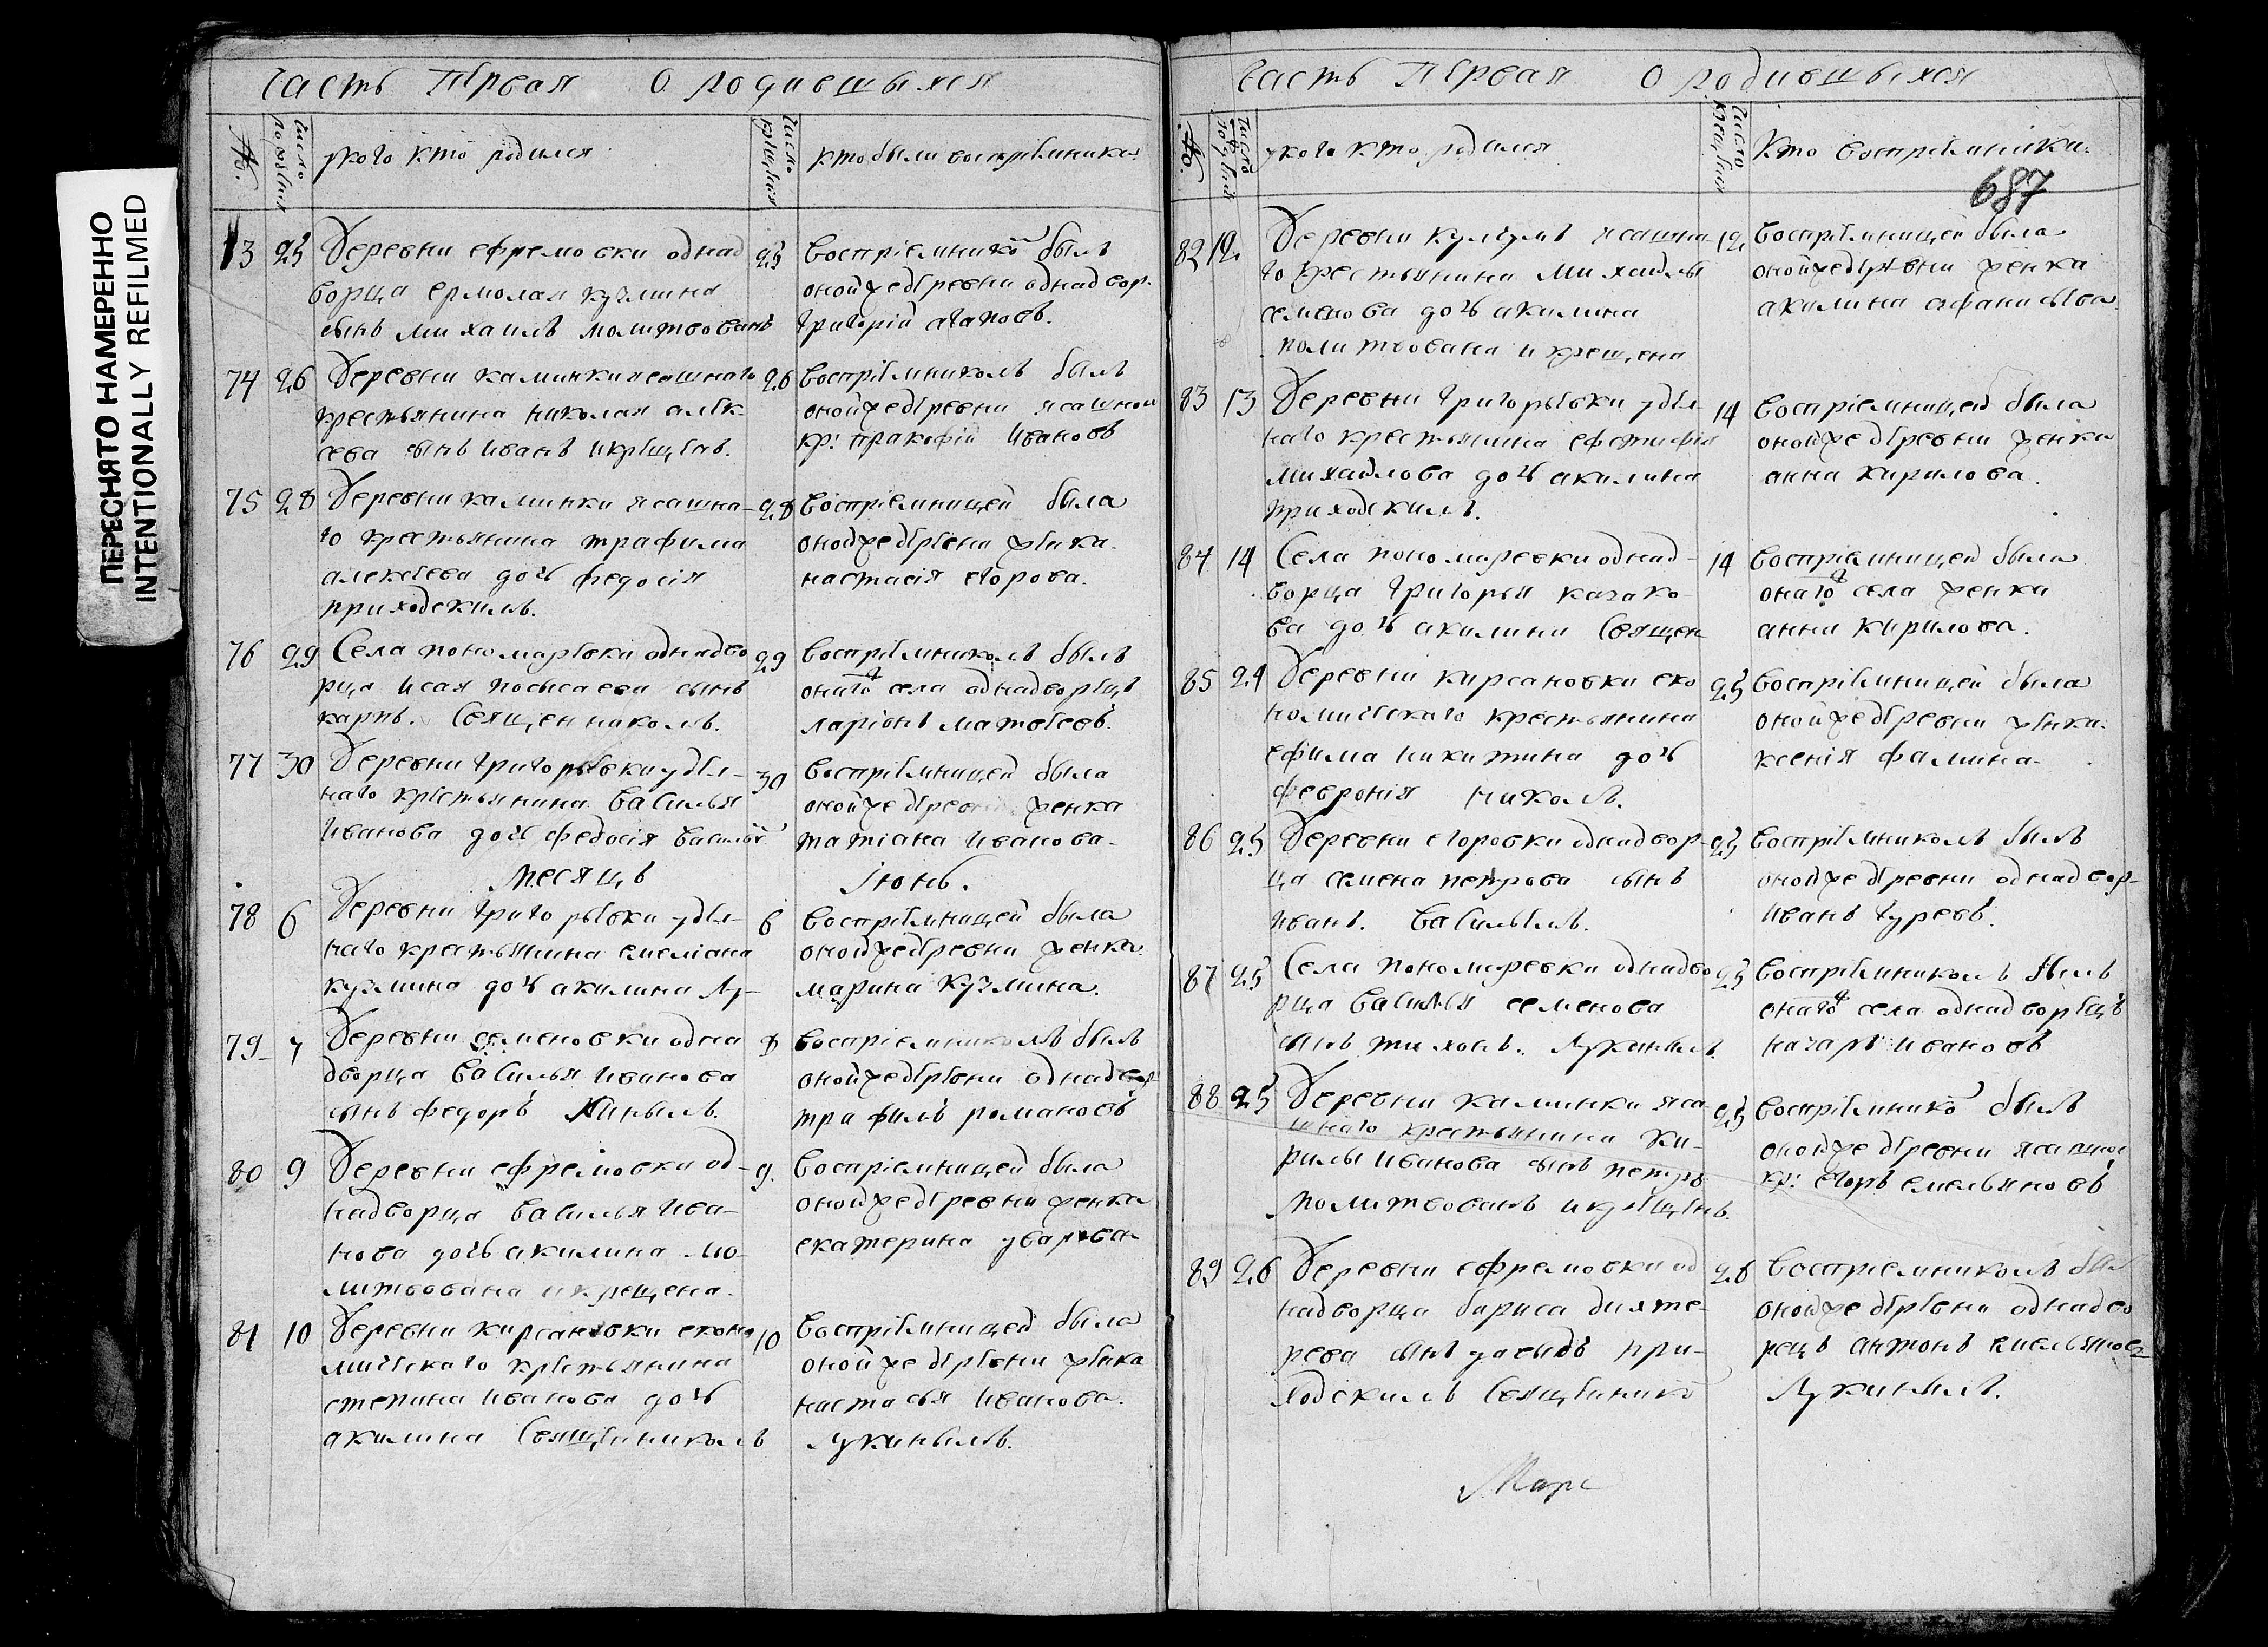 ПЕРЕСНЯТО НАМЕРЕННО
INTENTIONALLY REFILMED
Часть Первая О родившыхся
№.
число рождения
у кого кто родился
число крещения
кто были восприемники
73 25 Деревни ефремовки однад
ворца ермолая кузмина
сынъ михаилъ молитвованъ
25 восприемнико был
оной же деревни однадвор.
григорий агаповъ.
74 26 Деревни каминки ясашнаго
крестьянина николая алек-
сева сынъ иванъ и крещенъ.
26 восприемникомъ былъ
оной же деревни ясашной
кр: пракофий ивановъ
75 28 Деревни каминки ясашна-
го крестьянина трафима
алексеева дочь федосия
приходскимъ.
28 восприемницей была
оной же деревни женка.
настасия егорова.
76 29 Села пономаревки однадво
рца исая сынъ
карпъ. Священникомъ.
29 восприемникомъ былъ
онаго села однадворецъ
ларионъ матвеевъ.
77 30 Деревни григорьевки удел-
наго крестьянина василья
иванова дочь федосия
30 восприемницей была
оной же деревни женка
татиана иванова.
месяцъ Июнь.
78 6 Деревни григорьевки удел-
наго крестьянина емелиана
кузмина дочь акилина лу-
6 восприемницей была
оной же деревни женка.
марина кузмина.
79 7 Деревни семеновки одна
дворца василья иванова
сынъ федоръ
8 восприемникомъ былъ
оной же деревни однадвор
трафимъ романовъ
80 9 Деревни ефремовки од-
надворца василья ива-
нова дочь акилина мо-
литвована и крещена.
9. восприемницей была
оной же деревни женка
екатерина уварова
81 10 Деревни кирсановки еконо
мическаго крестьянина
степана иванова дочь
акилина Священникомъ
10 восприемницей была
оной же деревни женка
настасья иванова.
лукинымъ.
Часть Первая О родившыхся
№.
число рождения
у кого кто родился
число крещения
Кто восприемники.
687
82 12 Деревни ясашна
го крестьянина михаилы
семенова дочь акилина
молитвована и крещена
12 восприемницей была
оной же деревни женка
акилина афанасьева
83 13 Деревни григорьевки удел-
наго крестьянина
михайлова дочь акилина
приходскимъ.
14 восприемницей была
оной же деревни женка
анна кирилова.
84 14 Села пономаревки однад-
ворца григорья казако-
ва дочь акилина Священ
14 восприемницей была
онаго села женка
анна кирилова.
85 24 Деревни кирсановки еко
номическаго крестьянина
ефима никитина дочь
феврония никомъ.
25 восприемницей была
оной же деревни женка.
ксения фамина.
86 25 Деревни егоровки однадвор-
ца семена петрова сынъ
иванъ. васильемъ.
25 восприемникомъ былъ
оной же деревни однадвор-
иванъ гуревъ.
87 25 Села пономаревки однадво
рца василья семенова
сынъ тихонъ. лукинымъ
25 восприемникомъ былъ
онаго села однадворецъ
назаръ ивановъ
88 25 Деревни каминки яса
шнаго крестьянина ки-
рилы иванова сынъ петръ
молитвованъ и крещенъ.
25 восприемнико былъ
оной же деревни ясашной
кр: егоръ емельяновъ
89 26 Деревни ефремовки од
надворца бариса дихте-
рева сынъ давыдъ при-
ходскимъ Священнико
26 восприемникомъ был
оной же деревни однадво
рецъ антонъ емельяновъ
лукинымъ.
Марс